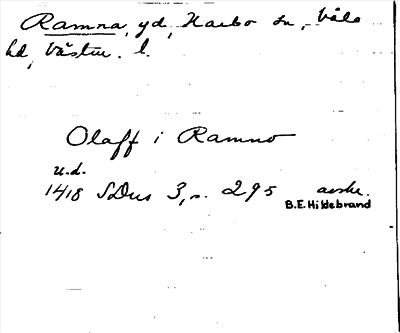 Ramna, yd, Harbo sn, Våla
hd, Västm. l.
Olaff i Ramno
u.d.
1418 SDns 3, s. 295 avskr.
B.E. Hildebrand